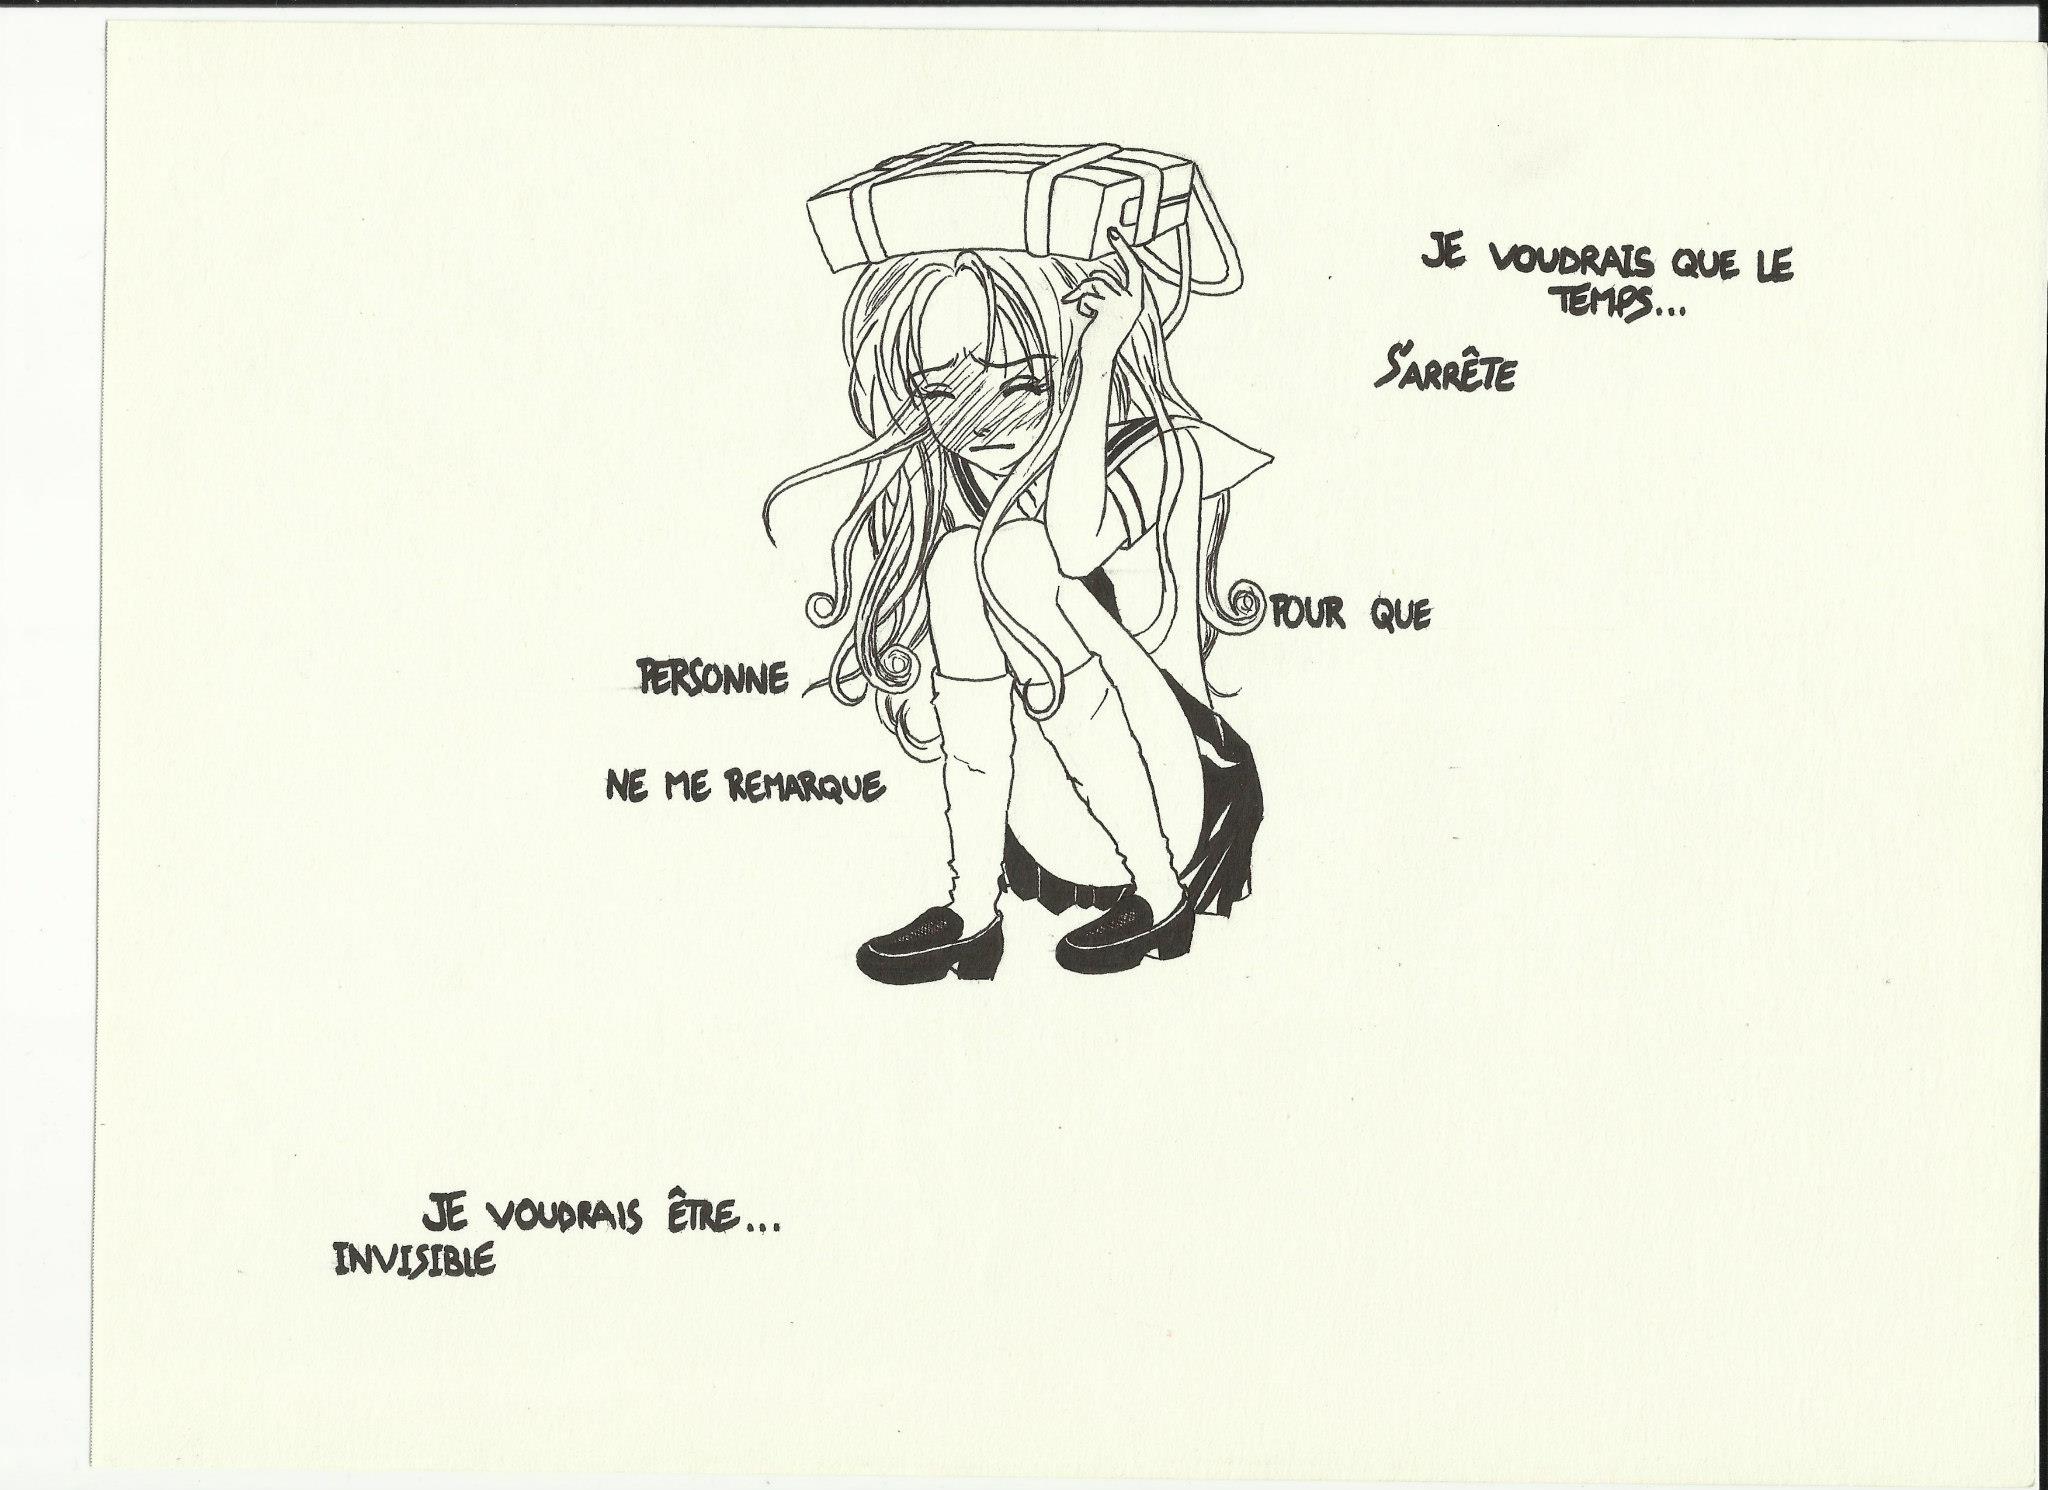 JE VOUDRAIS QUE LE
TEMPS...
S'ARRÊTE
POUR QUE
PERSONNE
NE ME REMARQUE
JE VOUDRAIS ÊTRE...
INVISIBLE